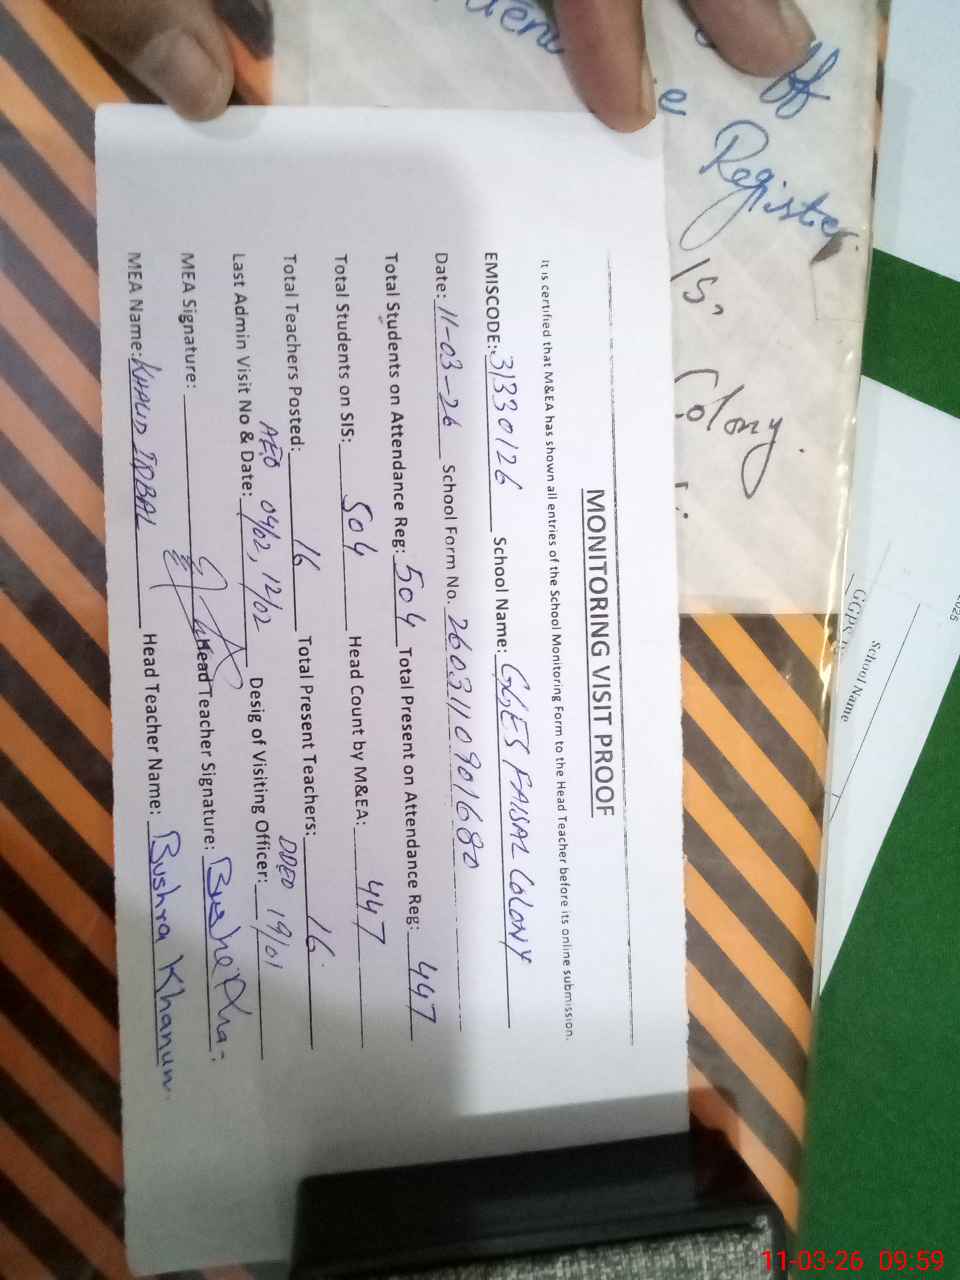 MONITORING VISIT PROOF
It is certified that M&EA has shown all entries of the School Monitoring Form to the Head Teacher before its online submission.
EMISCODE: 31330126 School Name: GGES FAISAL COLONY
Date: 11-03-26 School Form No. 260311090901680
Total Students on Attendance Reg: 504 Total Present on Attendance Reg: 447
Total Students on SIS: 504 Head Count by M&EA: 447
Total Teachers Posted: 16 Total Present Teachers: 16
Last Admin Visit No & Date: AEO 04/02, 12/02 Desig of Visiting Officer: DDEO 19/01
MEA Signature: Head Teacher Signature:
MEA Name: KHALID IQBAL Head Teacher Name: Bushra Khanum
Register
Colony
School Name
11-03-26 09:59